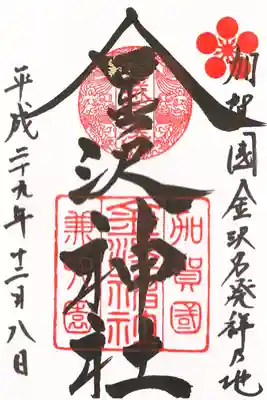 加賀國金沢名発祥乃地
金沢神社
平成二十九年十二月八日
加賀國
金沢神社
兼六園